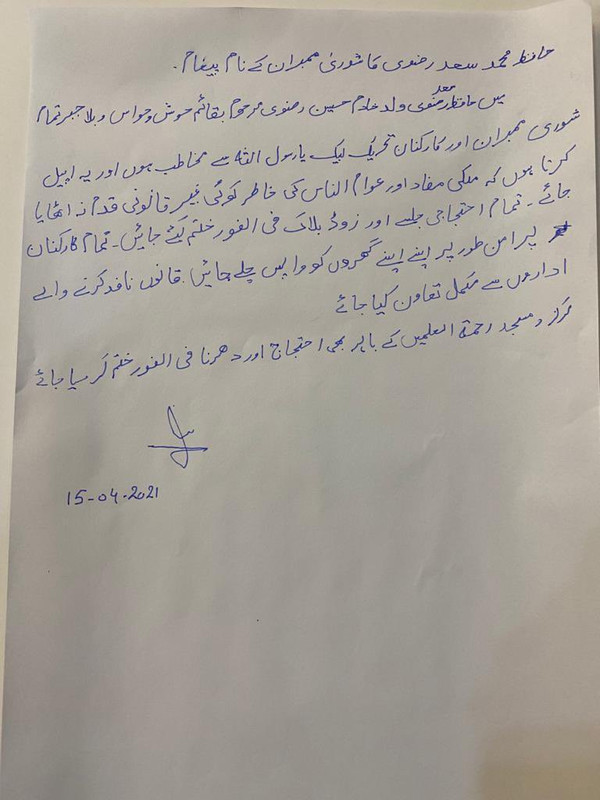 حافظ محمد سعد رضوی کا شوریٰ ممبران کے نام پیغام۔
میں حافظ سعد رضوی ولد خادم حسین رضوی مرحوم بقائم حوش و حواس و بلا جبر تمام
شوریٰ ممبران اور کارکنان تحریک لبیک یا رسول اللہ سے مخاطب ہوں اور یہ اپیل
کرتا ہوں کہ ملکی مفاد اور عوام الناس کی خاطر کوئی غیر قانونی قدم نہ اٹھایا
جائے۔ تمام احتجاجی جلسے اور روڈ بلاک فی الفور ختم کیئے جائیں۔ تمام کارکنان
پر امن طور پر اپنے اپنے گھروں کو واپس چلے جائیں۔ قانون نافذ کرنے والے
اداروں سے مکمل تعاون کیا جائے
مرکز و مسجد رحمۃ العلمین کے باہر بھی احتجاج اور دھرنا فی الفور ختم کر دیا جائے
15-04-2021